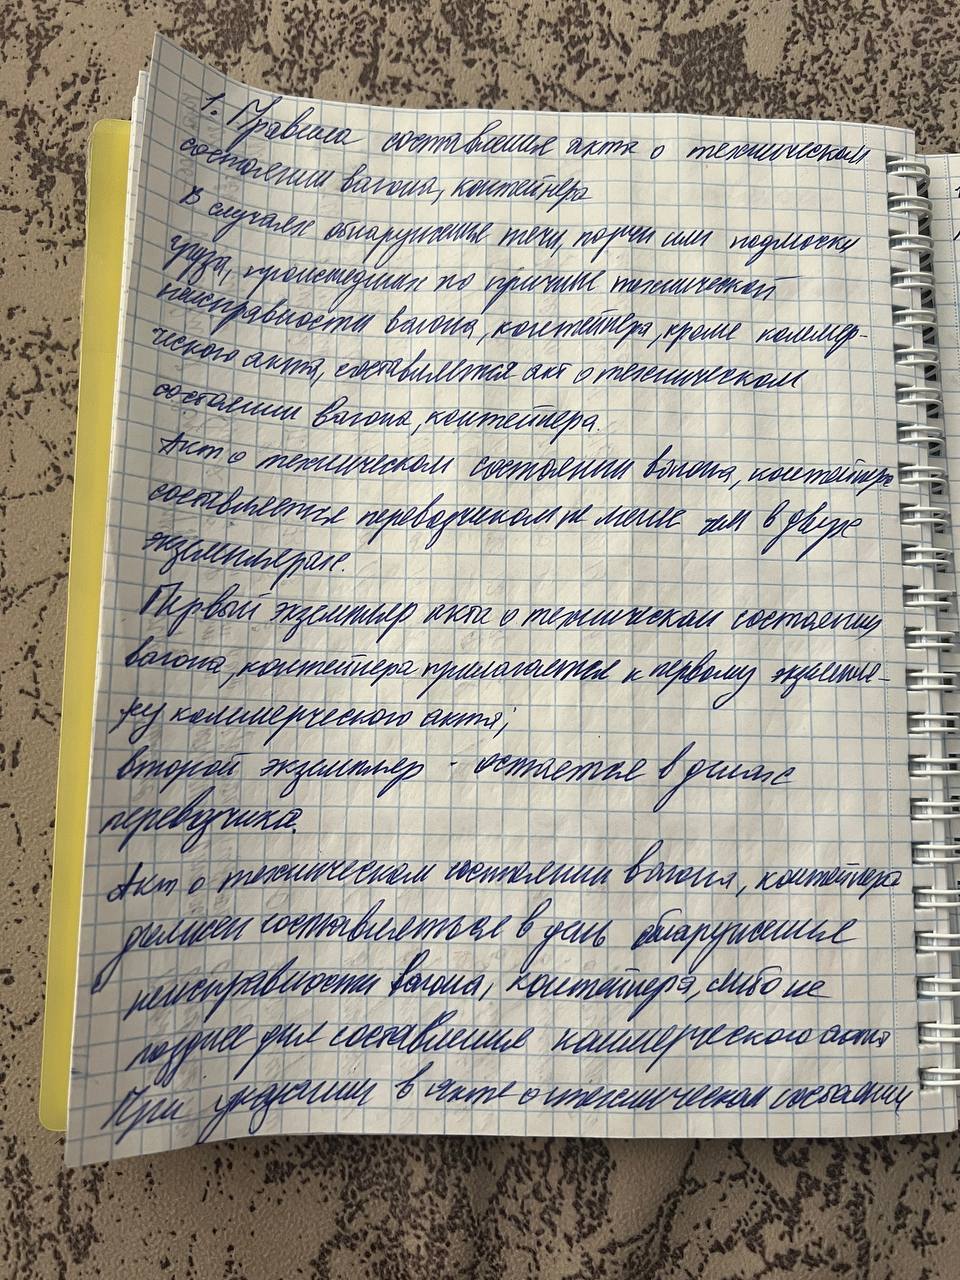 1. Правила составления акта о техническом
состоянии вагона, контейнера
В случаях обнаружения течи, порчи или подмочки
груза, происшедших по причине технической
неисправности вагона, контейнера, кроме коммер-
ческого акта, составляется акт о техническом
состоянии вагона, контейнера.
Акт о техническом состоянии вагона, контейнера
составляется перевозчиком не менее чем в двух
экземплярах.
Первый экземпляр акта о техническом состоянии
вагона, контейнера прилагается к первому экземпля-
ру коммерческого акта;
второй экземпляр - остается в делах
перевозчика.
Акт о техническом состоянии вагона, контейнера
должен составляться в день обнаружения
неисправности вагона, контейнера, либо не
позднее дня составления коммерческого акта
При указании в акте о техническом состоянии